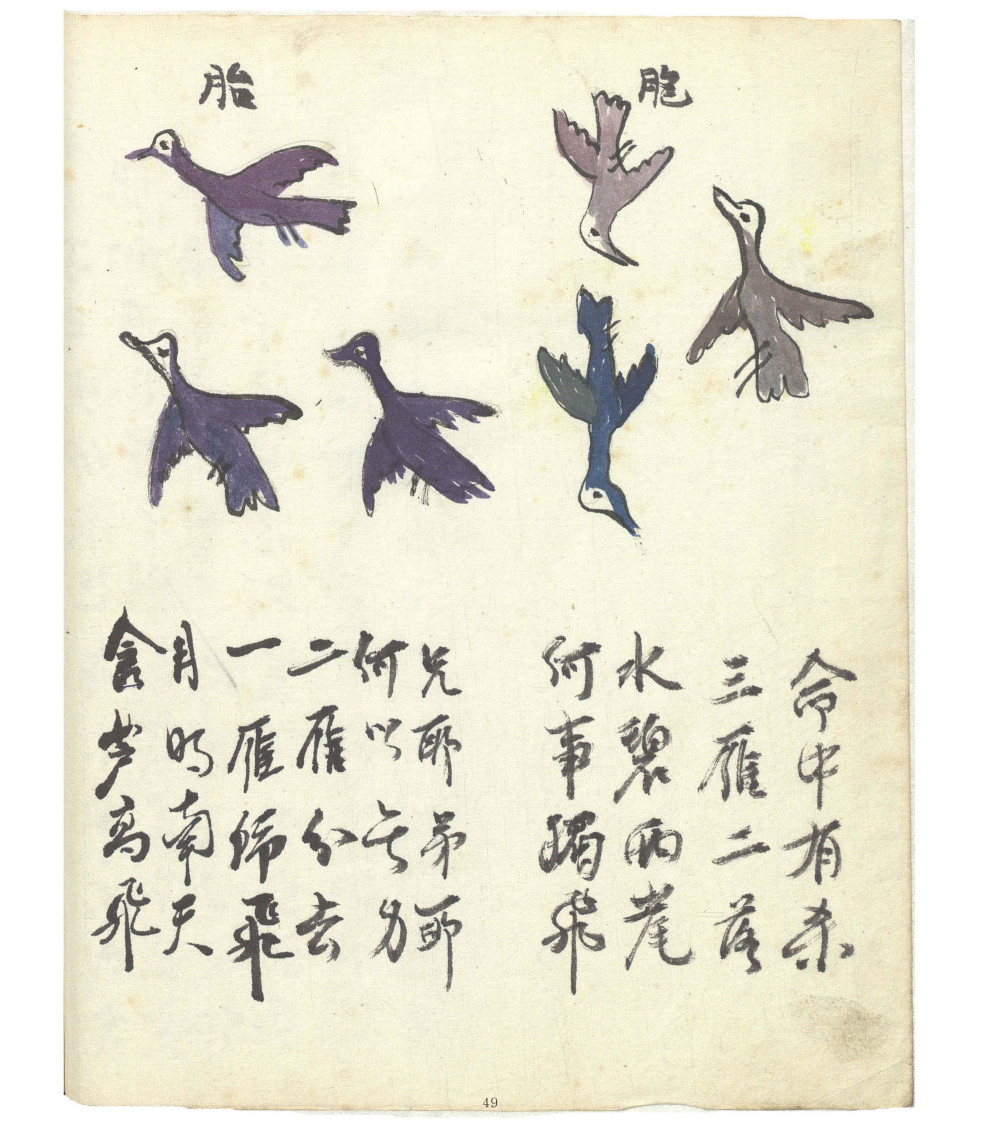 胞
命中有杀
三雁二落
水碧兩
何事獨飛
胎
兄耶弟耶
何以无力
二雁分去
一雁歸飛
月明南天
含芦高飛
49